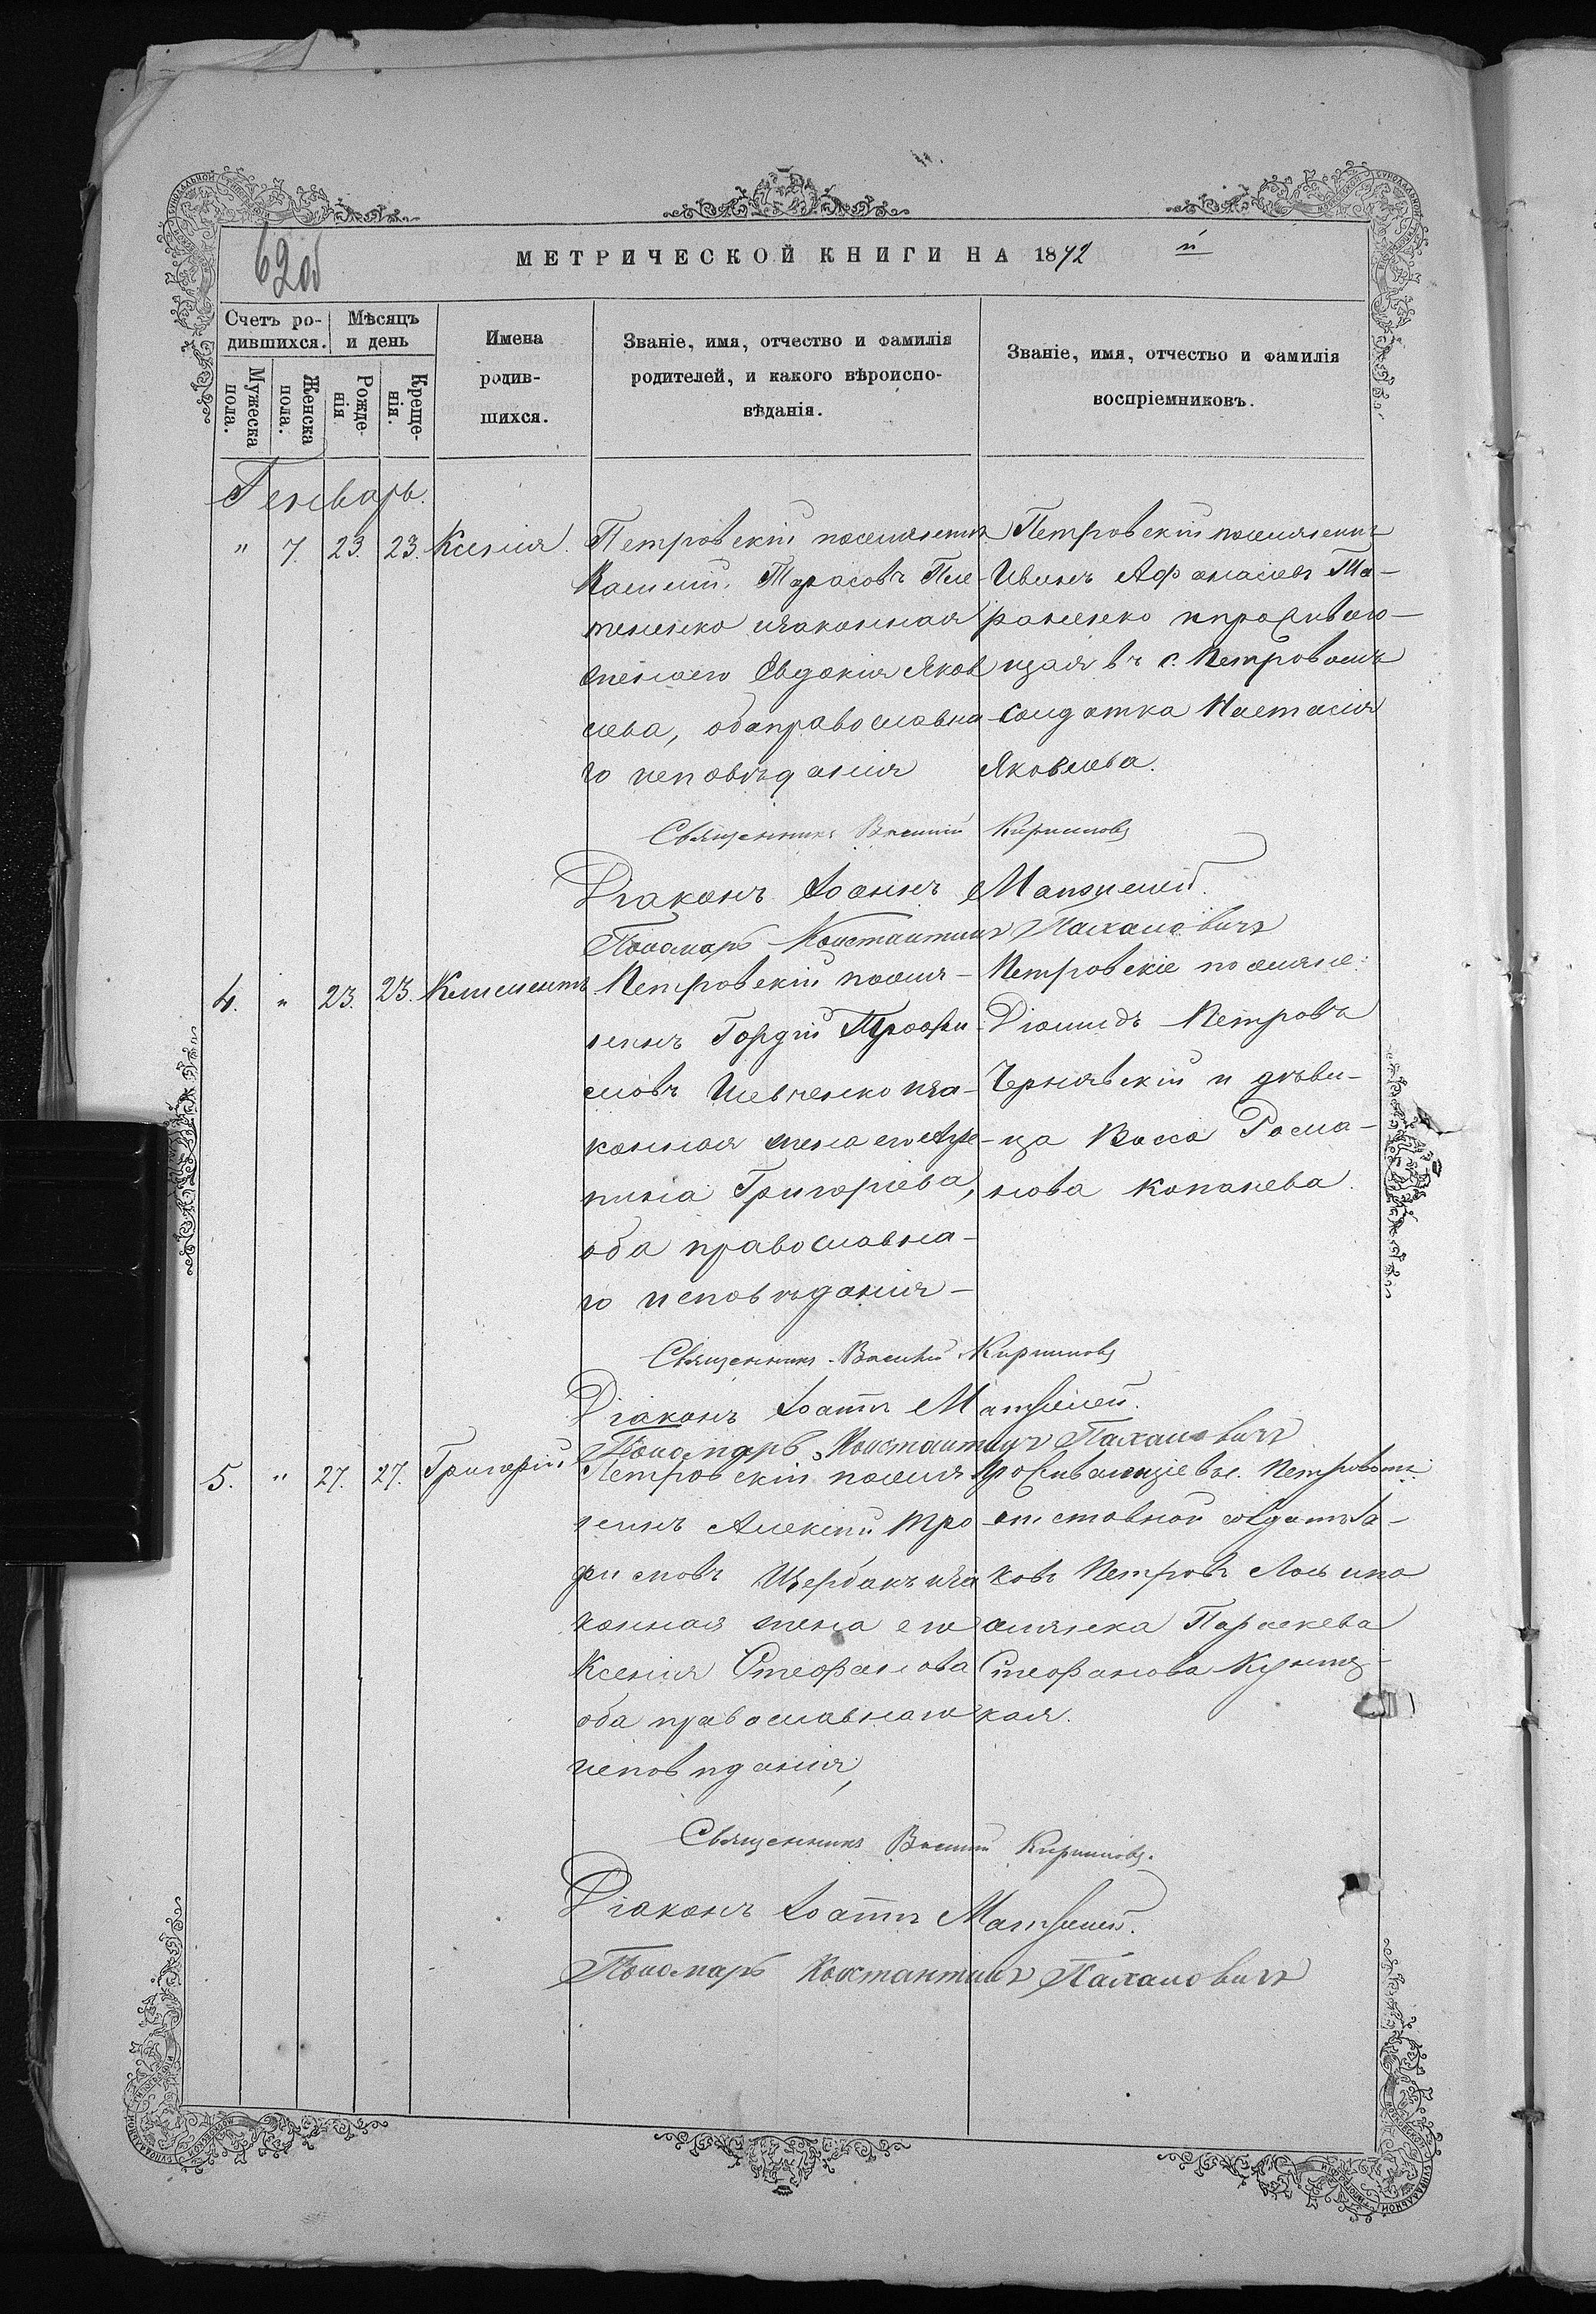 62об
МЕТРИЧЕСКОЙ КНИГИ НА 1872 й
Счетъ родившихся.
Мѣсяцъ и день
Имена родив-
шихся.
Званіе, имя, отчество и фамилія
родителей, и какого вѣроиспо-
вѣданія.
Званіе, имя, отчество и фамилія
воспріемниковъ.
Мужеска пола.
Женска пола.
Рожде-
нія.
Креще-
нія.
Генварь.
" 7. 23. 23. Ксенія.
Петровскій поселянинъ
Тарасовъ
тененко изаконная
жена его Евдокія Яков
лева, оба православна
го исповѣданія
Петровскій поселянинъ
Иванъ Афанасіевъ Та-
раненко и проживаю-
щая въ с. Петровомъ
солдатка Настасія
Яковлева.
Священникъ Василій Кирилловъ
Діаконъ Іоаннъ
Пономарь Константинъ Палхановичъ
4. " 23. 23. Климентъ
Петровскій поселя-
нинъ Гордій Трофи-
мовъ Шевченко иза-
конная жена его Агри-
пина Григоріева,
оба православна-
го исповѣданія-
Петровскіе поселяне:
Діомидъ Петровъ
Чернявскій и дѣви-
ца Васса Рома-
нова Копанева.
Священникъ Василій Кирилловъ
Діаконъ Іоаннъ
Пономарь Константинъ Палхановичъ
5. " 27. 27. Григорій
Петровскій поселя
нинъ Алексій Тро
фимовъ Щербакъ иза
конная жена его
Ксенія Стефанова
оба православнаго
исповѣданія,
Проживающіе въ с. Петровомъ:
отставной солдатъ Іа-
ковъ Петровъ Лось ипо
селянка Параскева
Стефанова
кая.
Священникъ Василій Кирилловъ.
Діаконъ Іоаннъ
Пономарь Константинъ Палхановичъ